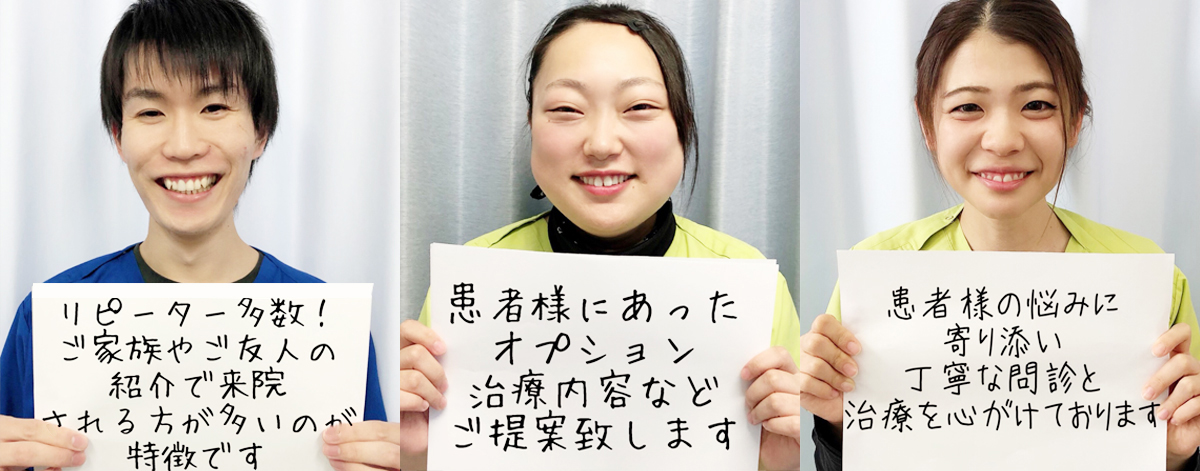 リピーター多数！
ご家族やご友人の
紹介で来院
される方が多いのが
特徴です
患者様にあった
オプション
治療内容など
ご提案致します
患者様の悩みに
寄り添い
丁寧な問診と
治療を心がけております